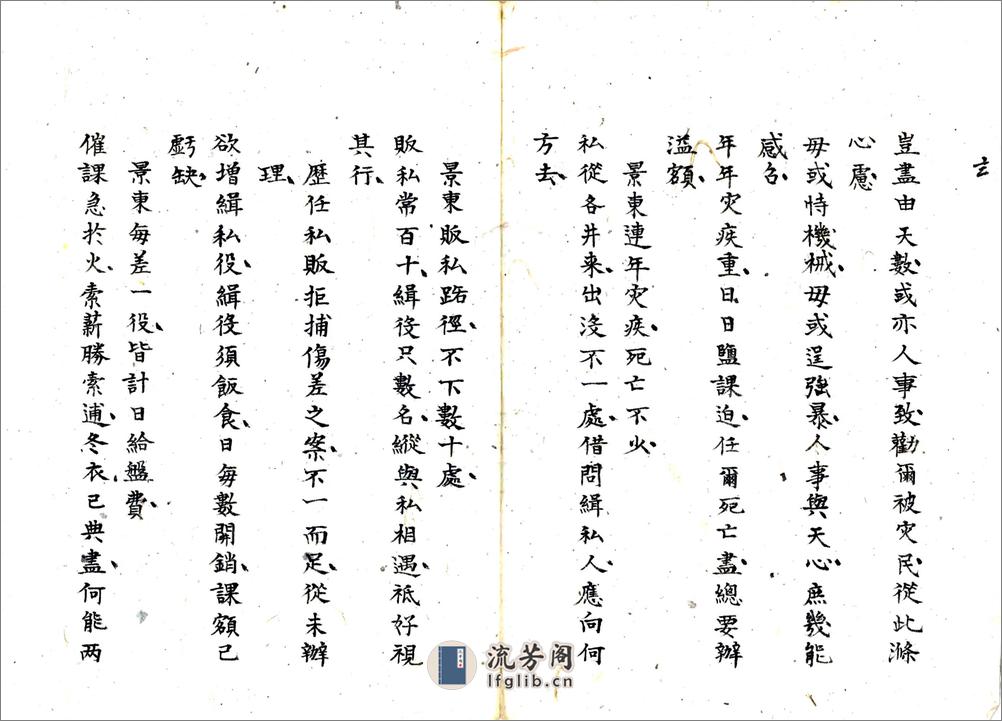 岂盡由天數或亦人事致勸爾被灾民從此滌
心慮
毋或恃機械毋或逞強暴人事與天心庶幾能
感召
年年灾疾重日日鹽課迫任爾死亡盡總要辦
溢額
景東連年灾疾死亡不少
私從各井来出沒不一處借問緝私人應向何
方去
景東販私路徑不下數十處
販私常百十緝役只數名縱與私相遇祗好視
其行
歷任私販拒捕傷差之案不一而足從未辦
理
欲增緝私役緝役須飯食日每數開銷課額已
虧缺
景東每差一役皆計日給盤費
催課急扵火索薪勝索逋冬衣已典盡何能两
流芳阁
lfglib.cn